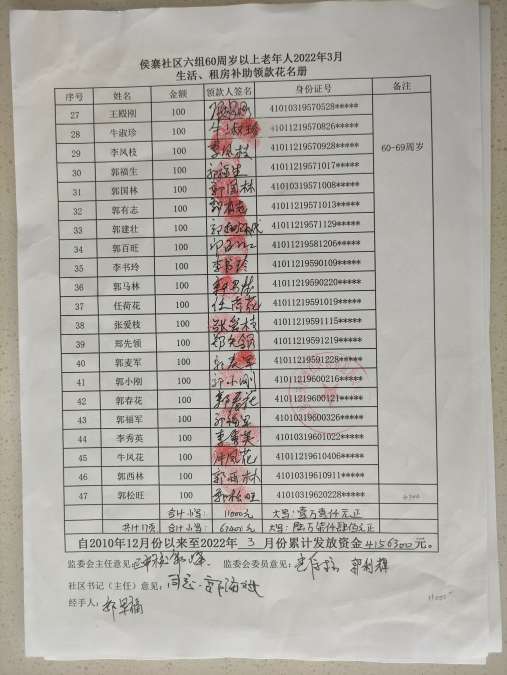 侯寨社区六组60周岁以上老年人2022年3月
生活、租房补助领款花名册
序号 姓名 金额 领款人签名 身份证号 备注
27 王殿刚 100 41010319570528*****
28 牛淑珍 100 牛淑珍 41011219570826*****
29 李风枝 100 李风枝 41011219570928***** 60-69周岁
30 郭福生 100 郭福生 41011219571017*****
31 郭国林 100 郭国林 41010319571008*****
32 郭有志 100 郭有志 41011219571013*****
33 郭建壮 100 41011219571129*****
34 郭百旺 100 41011219581206*****
35 李书玲 100 李书玲 41011219590109*****
36 郭马林 100 41011219590220*****
37 任荷花 100 任荷花 41011219591019*****
38 张爱枝 100 张爱枝 41011219591115*****
39 郑先领 100 郑先领 41011219591219*****
40 郭麦军 100 郭麦军 41011219591228*****
41 郭小刚 100 郭小刚 41011219600216*****
42 郭春花 100 郭春花 41011219600121*****
43 郭福军 100 郭福军 41010319600326*****
44 李秀英 100 李秀英 41010319601022*****
45 牛风花 100 牛风花 41011219610406*****
46 郭西林 100 郭西林 41010319610911*****
47 郭松旺 100 郭松旺 41010319620228*****
合计小写: 11000元 大写:壹万壹仟元正
共计17页 合计小写: 67400元 大写:陆万柒仟肆佰元正
自2010年12月份以来至2022年 3 月份累计发放资金4156300元。
监委会主任意见: 监委会委员意见: 郭利辉
社区书记(主任)意见: 同意
经手人: